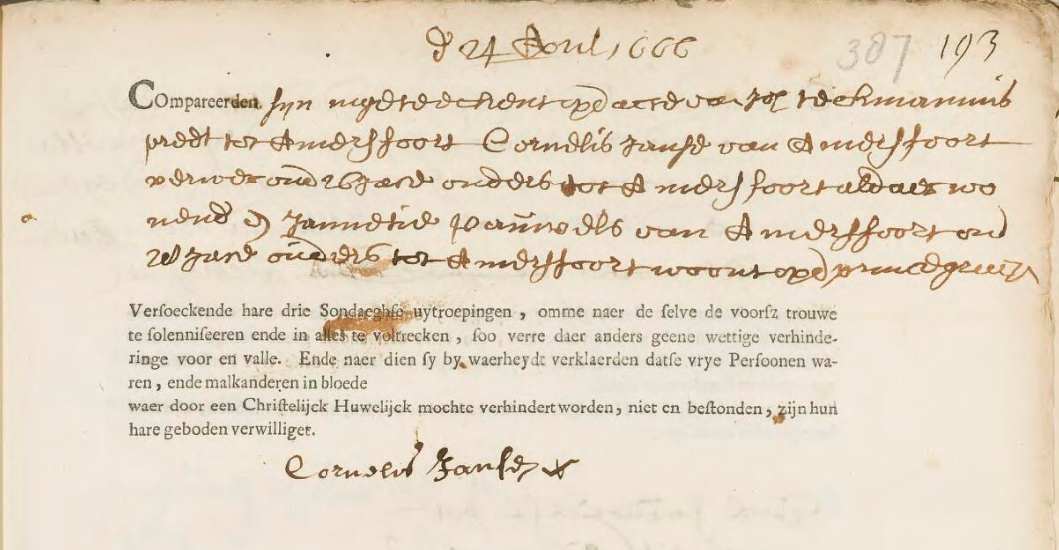 d 24 April 1666
387 193
Compareerden sijn ingeteeckent opd acte van Joh Teckmannus
predt tot Amersfoort Cornelis Janse van Amersfoort
verwer oud 26 jare ouders tot Amersfoort aldaer wo
nend en Jannetie Pauwels van Amersfoort oud
28 jare ouders tot Amersfoort woont opd princegraft
Versoeckende hare drie Sondaeghse uytroepingen, omme naer de selve de voorsz trouwe
te solenniseeren ende in alles te voltrecken, soo verre daer anders geene wettige verhinde-
ringe voor en valle. Ende naer dien sy by waerheydt verklaerden datse vrye Persoonen wa-
ren, ende malkanderen in bloede
waer door een Christelijck Huwelijck mochte verhindert worden, niet en bestonden, zijn hun
hare geboden verwilliget.
Cornelis Janse